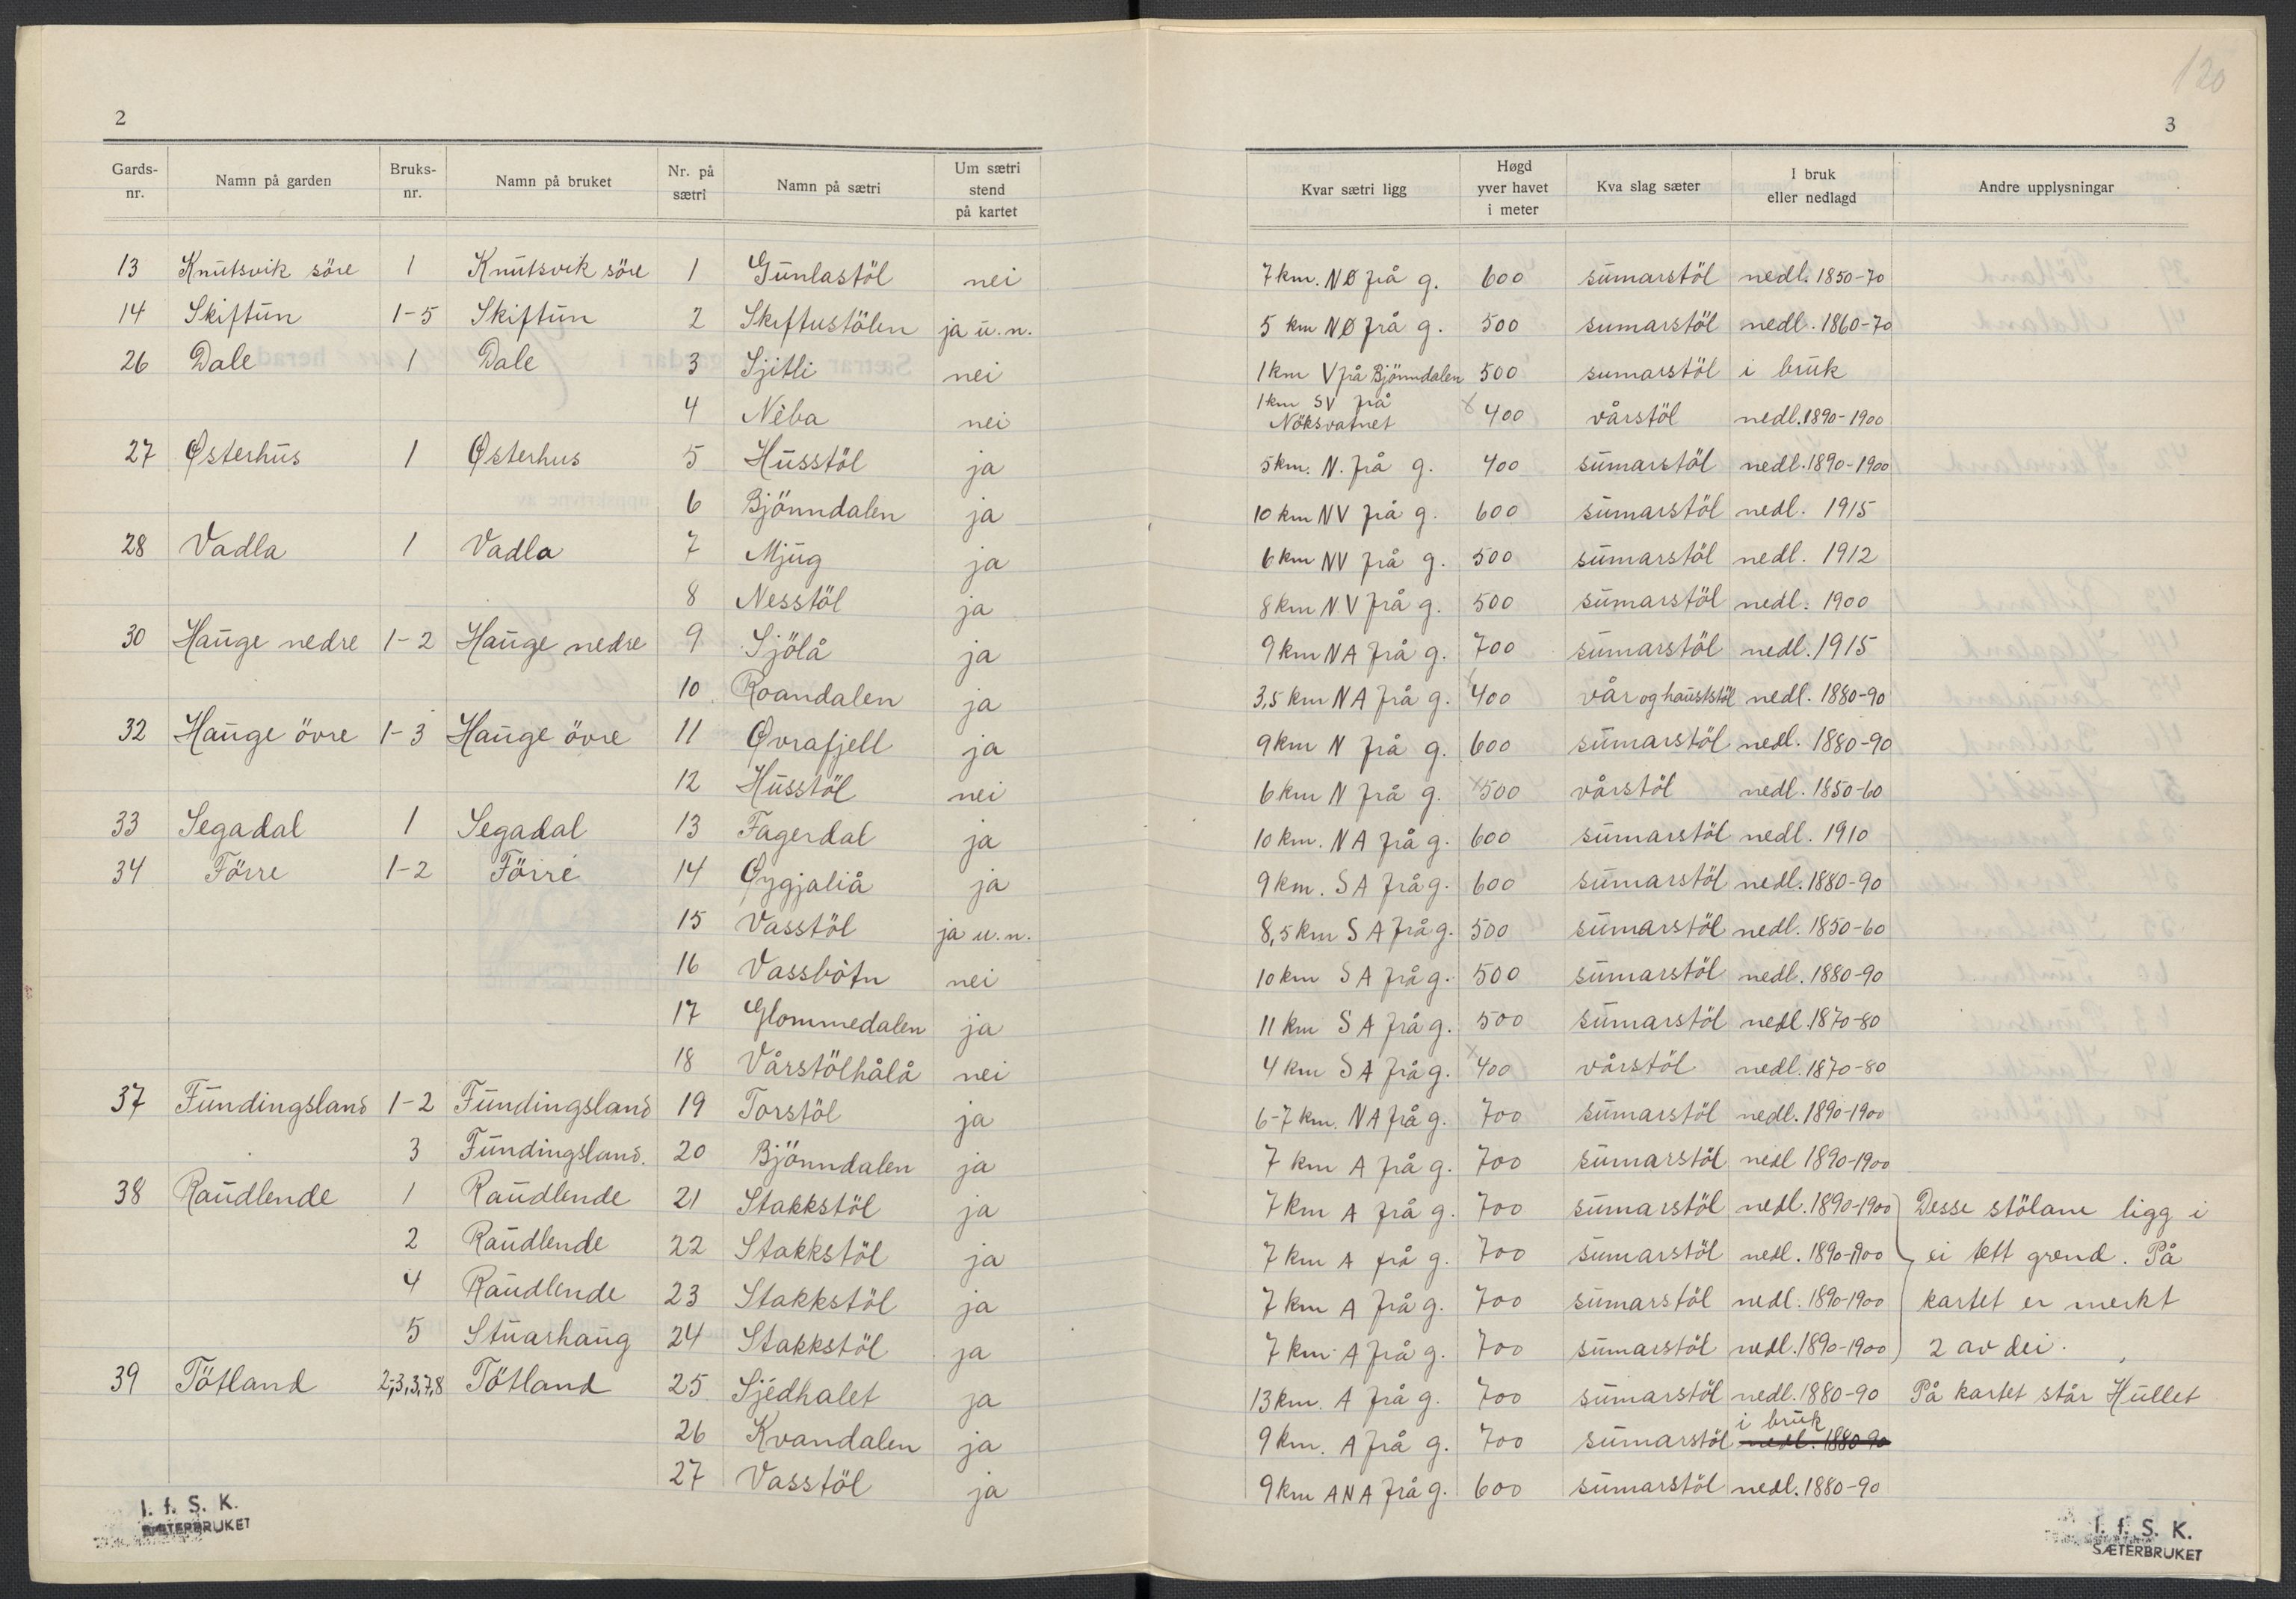 120
2
3
Gards-nr. Namn på garden Bruks-nr. Namn på bruket Nr. på sætri Namn på sætri Um sætri stend på kartet Kvar sætri ligg Høgd yver havet i meter Kva slag sæter I bruk eller nedlagd Andre upplysningar
13 Knutsvik söre 1 Knutsvik söre 1 Gunlastöl nei 7 km. NØ frå g. 600 sumarstöl nedl. 1850-70
14 Skiftun 1-5 Skiftun 2 Skiftustölen ja u.n. 5 km NØ frå g. 500 sumarstöl nedl. 1860-70
26 Dale 1 Dale 3 Sjitli nei 1 km V frå Bjönndalen 500 sumarstöl i bruk
4 Nèba nei 1 km SV frå Nöksvatnet x 400 vårstöl nedl. 1890-1900
27 Østerhus 1 Østerhus 5 Husstöl ja 5 km. N. frå g. 400 sumarstöl nedl. 1890-1900
6 Bjönndalen ja 10 km NV frå g. 600 sumarstöl nedl. 1915
28 Vadla 1 Vadla 7 Mjug ja 6 km NV frå g. 500 sumarstöl nedl. 1912
8 Nesstöl ja 8 km NV frå g. 500 sumarstöl nedl. 1900
30 Hauge nedre 1-2 Hauge nedre 9 Sjölå ja 9 km NA frå g. 700 sumarstöl nedl. 1915
10 Roandalen ja 3,5 km NA frå g. x 400 vår og hauststöl nedl. 1880-90
32 Hauge övre 1-3 Hauge övre 11 Øvrafjell ja 9 km N frå g. 600 sumarstöl nedl. 1880-90
12 Husstöl nei 6 km N frå g. x 500 vårstöl nedl. 1850-60
33 Segadal 1 Segadal 13 Fagerdal ja 10 km. NA frå g. 600 sumarstöl nedl. 1910
34 Förre 1-2 Förre 14 Øygjaliå ja 9 km. SA frå g. 600 sumarstöl nedl. 1880-90
15 Vasstöl ja u.n. 8,5 km SA frå g. 500 sumarstöl nedl. 1850-60
16 Vassbòtn nei 10 km SA frå g. 500 sumarstöl nedl. 1880-90
17 Glommedalen ja 11 km SA frå g. 500 sumarstöl nedl. 1870-80
18 Vårstölhålå nei 4 km SA frå g. x 400 vårstöl nedl. 1870-80
37 Fundingsland 1-2 Fundingsland 19 Torstöl ja 6-7 km. NA frå g. 700 sumarstöl nedl. 1890-1900
3 Fundingsland. 20 Bjönndalen ja 7 km A frå g. 700 sumarstöl nedl 1890-1900
38 Raudlende 1 Raudlende 21 Stakkstöl ja 7 km A frå g. 700 sumarstöl nedl. 1890-1900 Desse stölane ligg i
2 Raudlende 22 Stakkstöl ja 7 km A frå g. 700 sumarstöl nedl. 1890-1900 ei tett grend. På
4 Raudlende 23 Stakkstöl ja 7 km A frå g. 700 sumarstöl nedl. 1890-1900 kartet er merkt
5 Stuarhaug 24 Stakkstöl ja 7 km A frå g. 700 sumarstöl nedl. 1890-1900 2 av dei.
39 Tötland 2,3,3,7,8 Tötland 25 Sjedhalet ja 13 km. A frå g. 700 sumarstöl nedl. 1880-90 På kartet står Hullet
26 Kvandalen ja 9 km. A frå g. 700 sumarstöl i bruk nedl. 1880-90
27 Vasstöl ja 9 km ANA frå g. 600 sumarstöl nedl. 1880-90
I. f. S. K.
SÆTERBRUKET
I. f. S. K.
SÆTERBRUKET